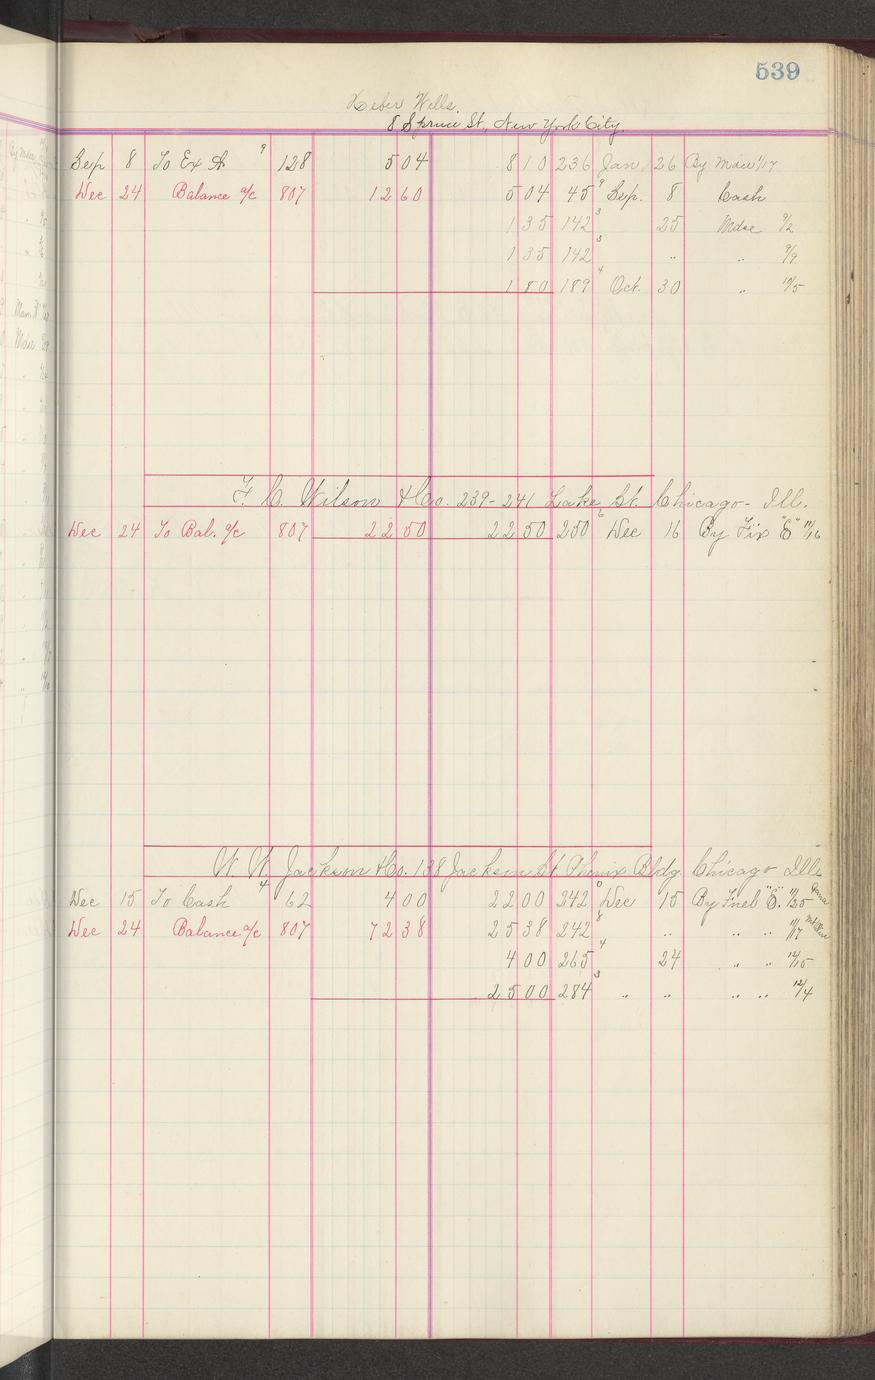 539
Heber Wells.
8 Spruce St., New York City.
Sep 8 To Ex A 9 128 5 04 8 10 236 Jan 26 By Mdse 1/17
Dec 24 Balance a/c 807 12 60 5 04 45 9 Sep. 8 Cash
1 35 142 3 25 Mdse 9/2
1 35 142 3 " " 9/9
1 80 189 4 Oct. 30 " 10/5
F. C. Wilson & Co. 239-241 Lake St. Chicago - Ill.
Dec 24 To Bal. a/c 807 22 50 22 50 250 6 Dec 16 By Fix "E" 11/16
W. W. Jackson & Co. 138 Jackson St. Phenix Bldg. Chicago Ills
Dec 15 To Cash 4 62 4 00 22 00 242 8 Dec 15 By Fuel "E". 11/25
Dec 24 Balance a/c 807 72 38 25 38 242 8 " " " 11/17
4 00 265 4 24 " " 12/15
25 00 284 3 " " " " 12/4